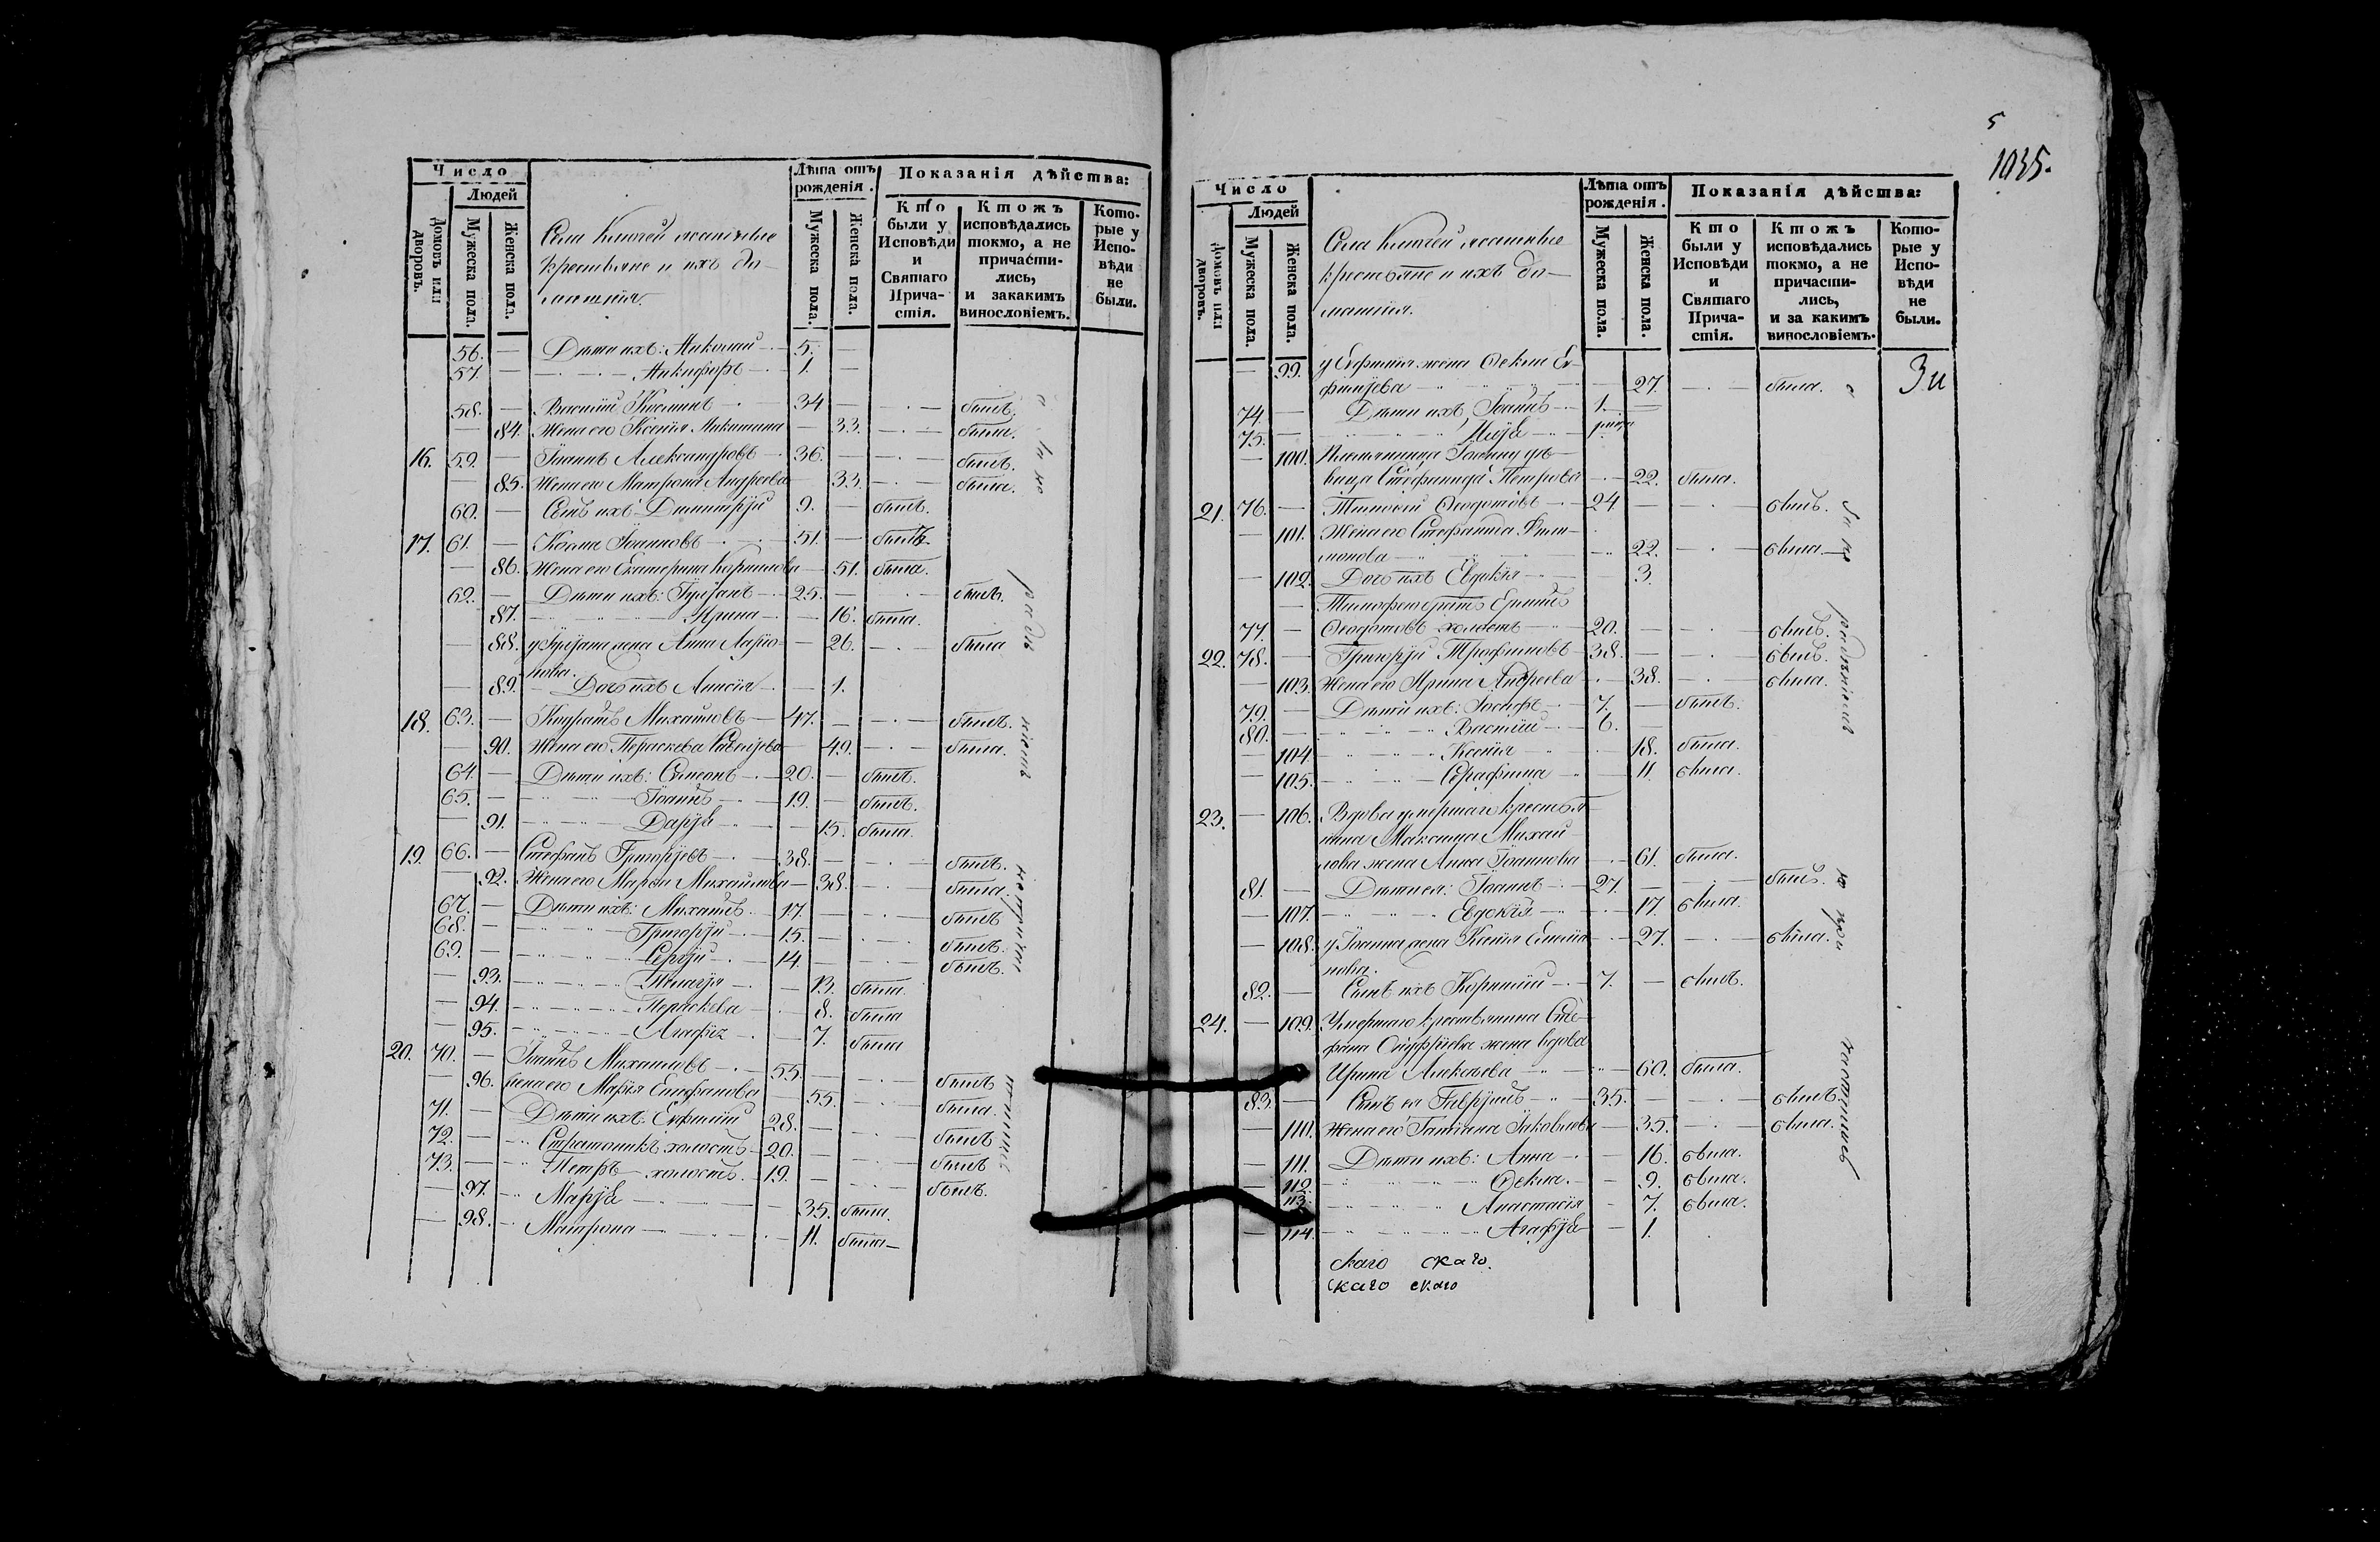 Число
Людей
Домовъ или дворовъ.
Мужеска пола.
Женска пола.
Села Ключей ясашные
крестьяне и ихъ до-
машнія.
Лѣта отъ рожденія.
Мужеска пола.
Женска пола.
Показанія дѣйства:
Кто были у Исповѣди и Святаго Причастія.
Ктожъ исповѣдались токмо, а не причастились, и закакимъ винословіемъ.
Которые у Исповѣди не были.
56. — Дѣти ихъ: Николай — 5. —
57. — Никифоръ — 1. —
58. — Василій Косминъ — 34 — былъ.
— 84. Жена его Ксенія Никитина — 33. — была.
16. 59. — Іоаннъ Александровъ — 36. — былъ.
— 85. Жена его Матрона Андреева — 33. — была.
60. — Сынъ ихъ Димитрій 9. — былъ.
17. 61. — Косма Іоанновъ — 51. — былъ.
— 86. Жена его Екатерина Корнилова — 51. была.
62. — Дѣти ихъ: Гуріанъ — 25. — былъ.
87. — Ирина — 16. была.
— 88. у Гуріана жена Анна Ларіо- — 26. — была
нова.
— 89. — Дочь ихъ Анисія — 1.
18. 63. — Кодратъ Михайловъ — 47. — былъ.
— 90. Жена его Параскева Савельева — 49. — была.
64. — Дѣти ихъ: Симеонъ — 20. — былъ.
65. — Іоаннъ — 19. — былъ.
— 91. — Дарья — 15. была.
19. 66. — Стефанъ Григорьевъ — 38. — былъ.
— 92. Жена его Марья Михайлова — 38. — была.
67. — Дѣти ихъ: Михаилъ — 17. — былъ
68. — Григорій — 15. — былъ.
69. — Сергій — 14. — былъ.
— 93. — Пелагія — 13. была.
— 94. — Параскева — 8. была
— 95. — Агафія — 7. была
20. 70. — Іоаннъ Михайловъ — 55. — былъ
— 96. жена его Марія Стефанова — 55. — была.
71. — Дѣти ихъ: Евфимій 28. — былъ
72. — Стратоникъ холостъ — 20. — былъ
73. — Петръ — холостъ. — 19. — былъ.
— 97. — Марья — 35. была.
— 98. — Матрона — 11. была —
5
1035.
Число
Людей
Домовъ или дворовъ.
Мужеска пола.
Женска пола.
Села Ключей ясашные
крестьяне и ихъ до-
машнія.
Лѣта отъ рожденія.
Мужеска пола.
Женска пола.
Показанія дѣйства:
Кто были у Исповѣди и Святаго Причастія.
Ктожъ исповѣдались токмо, а не причастились, и за какимъ винословіемъ.
Которые у Исповѣди не были.
— 99. у Евфимія жена Ѳекла Ев-
фимова — 27. — была.
74. — Дѣти ихъ, Іоаннъ — 1. —
75. —
— 100. Племянница Іоанну дѣ-
вица Стефанида Петрова — 22. была.
21. 76. — Тимоѳей Ѳедотовъ — 24 — былъ.
— 101. Жена его Стефанида Фили-
монова — 22. — была —
— 102. Дочь ихъ Евдокія — 3.
— Тимоѳею братъ
77. — Ѳедотовъ холостъ — 20. — былъ.
22. 78. — Григорій Трофимовъ — 38. — былъ.
— 103. Жена его Ирина Андреева — 38. — была.
79. — Дѣти ихъ: Іосифъ — 7. — былъ.
80. — Василій — 6. —
— 104 — Ксенія — 18. была.
— 105. — Серафима — 11. была.
23. — 106. Вдова умершаго крестья-
нина Максима Михай-
лова жена Анна Іоаннова — 61. была.
81. — Дѣти ея: Іоаннъ — 27. — былъ.
— 107. — Евдокія — 17. была.
— 108. у Іоанна жена Ксенія — 27. — была.
нова.
82. — Сынъ ихъ Корнилій — 7. — былъ.
24. — 109. Умершаго крестьянина Сте-
фана Онуфріева жена вдова
Ирина Алексѣева — 60. была.
83. — Сынъ ея Гавріилъ — 35. — былъ.
— 110. Жена его Татіана Іаковлева — 35. — была.
— 111. Дѣти ихъ: Анна — 16. была.
— 112. — Ѳекла. — 9. была.
113. — Анастасія — 7. была.
— 114. — Агафья — 1.
скаго скаго.
скаго скаго